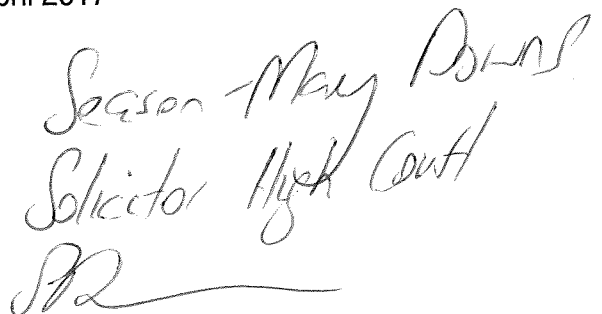 2017
Season-May Downs
Solicitor High Court